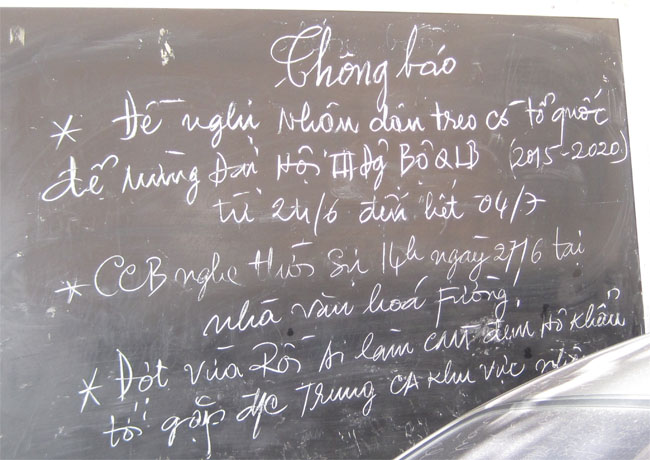 Thông báo
* Đề nghị Nhân dân treo cờ tổ quốc
để mừng Đại Hội III Đg Bộ QLB (2015-2020)
từ 24/6 đến hết 04/7
* CCB nghe thời sự 14h ngày 27/6 tại
nhà văn hoá Fường.
* Đợt vừa Rồi Ai làm CMT đem Hộ Khẩu
tới gặp đ/c Trung CA Khu vực